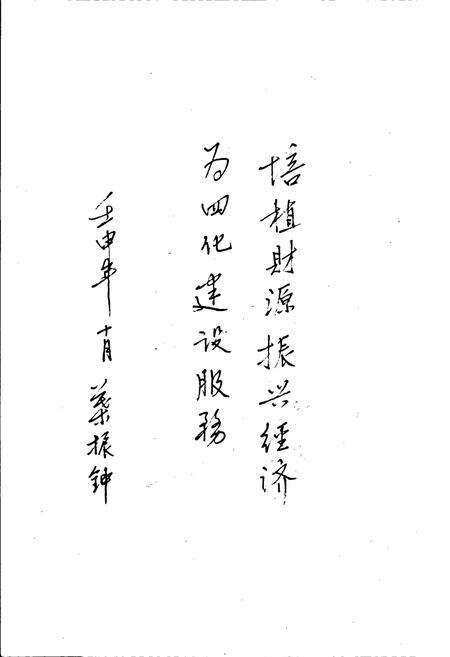 培植財源振兴经济
为四化建设服務
壬申年十月葉振鈡